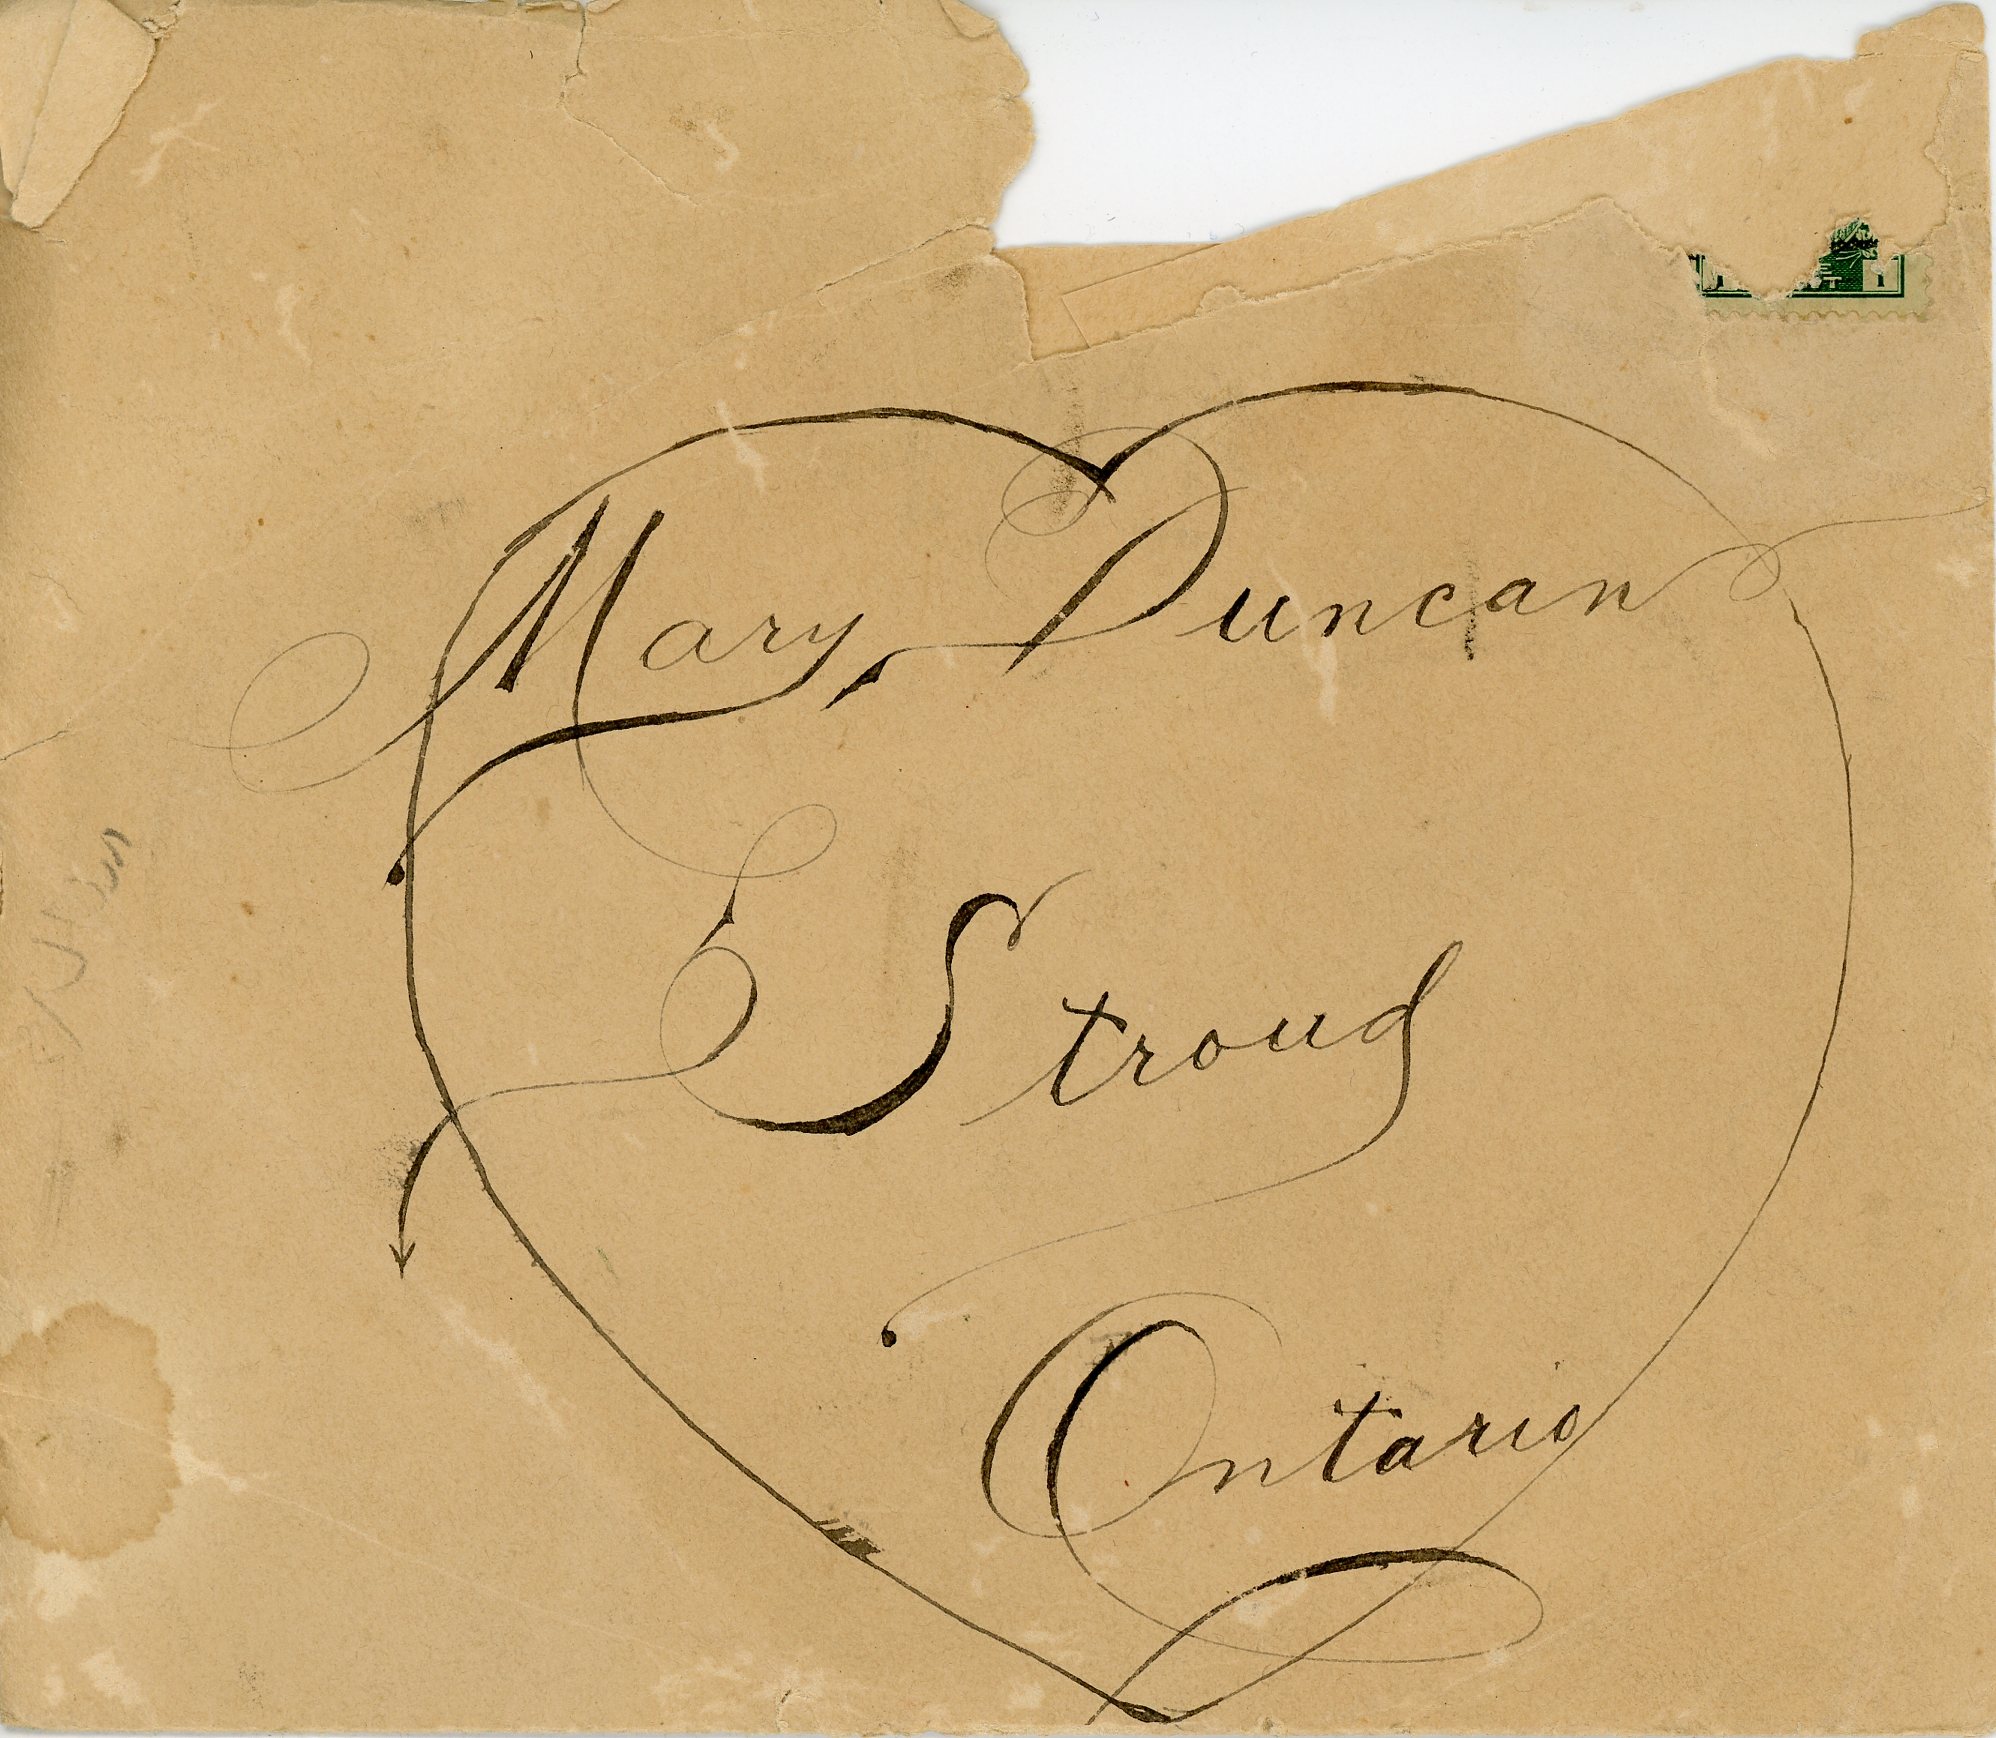 Mary Duncan
Stroud
Ontario
1